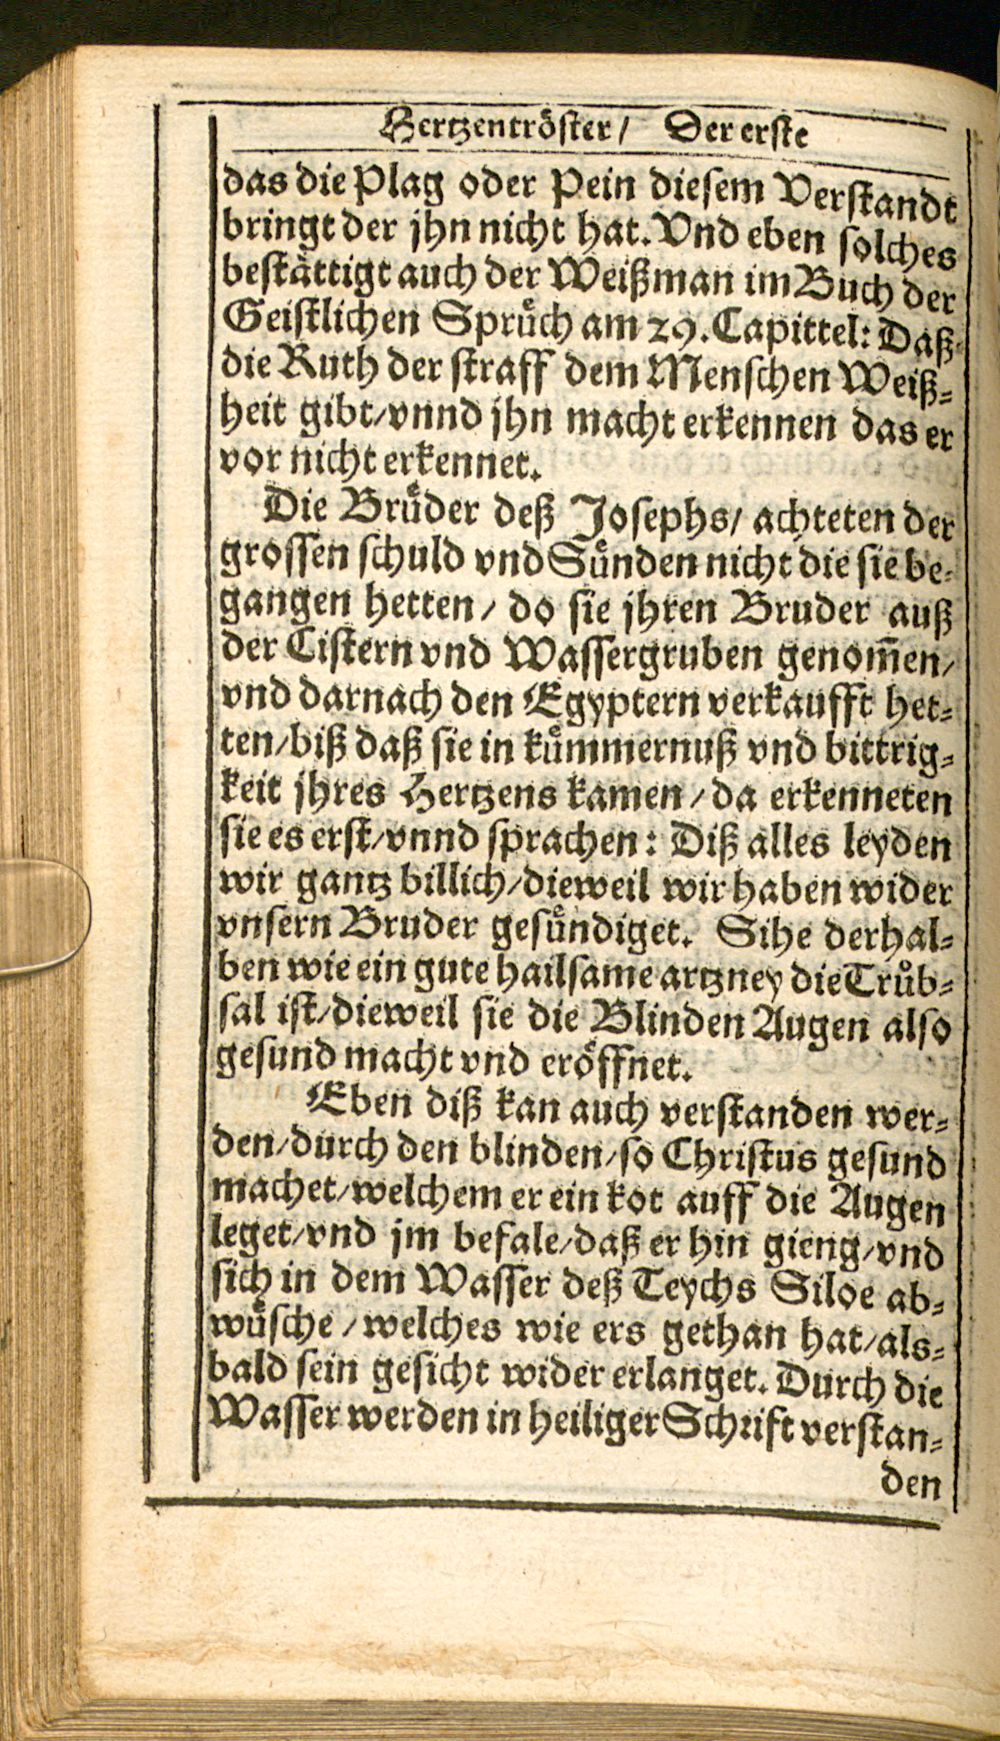 Hertzentröster / Der erste
das die Plag oder Pein diesem Verstandt
bringt der jhn nicht hat. Vnd eben solches
bestättigt auch der Weißman im Buch der
Geistlichen Sprüch am 29. Capittel: Daß
die Ruth der straff dem Menschen Weiß-
heit gibt / vnnd jhn macht erkennen das er
vor nicht erkennet.
Die Brüder deß Josephs / achteten der
grossen schuld vnd Sünden nicht die sie be-
gangen hetten / do sie jhren Bruder auß
der Cistern vnd Wassergruben genom̃en /
vnd darnach den Egyptern verkaufft het-
ten / biß daß sie in kümmernuß vnd bittrig-
keit jhres Hertzens kamen / da erkenneten
sie es erst / vnnd sprachen: Diß alles leyden
wir gantz billich / dieweil wir haben wider
vnsern Bruder gesündiget. Sihe derhal-
ben wie ein gute hailsame artzney die Trůb-
sal ist / dieweil sie die Blinden Augen also
gesund macht vnd eröffnet.
Eben diß kan auch verstanden wer-
den / durch den blinden / so Christus gesund
machet / welchem er ein kot auff die Augen
leget / vnd jm befale / daß er hin gieng / vnd
sich in dem Wasser deß Teychs Siloe ab-
wüsche / welches wie ers gethan hat / als-
bald sein gesicht wider erlanget. Durch die
Wasser werden in heiliger Schrift verstan-
den